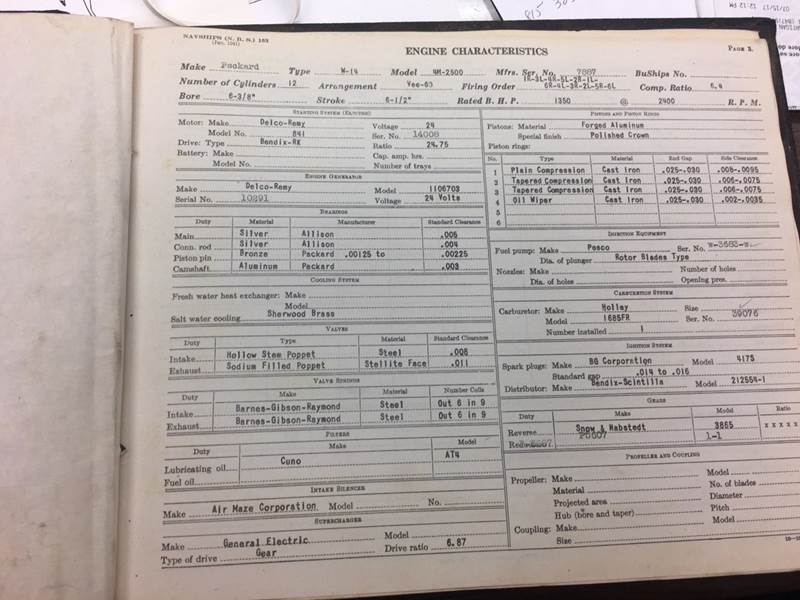 NAVSHIPS (N. B. S.) 163
(Jan. 1941)
ENGINE CHARACTERISTICS
PAGE 3.
Make Packard Type W-14 Model 4M-2500 Mfrs. Ser. No. 7887 BuShips No.
Number of Cylinders 12 Arrangement Vee-60 Firing Order 1R-3L-4R-5L-2R-1L- 6R-4L-3R-2L-5R-6L Comp. Ratio 6.4
Bore 6-3/8" Stroke 6-1/2" Rated B. H. P. 1350 @ 2400 R. P. M.
STARTING SYSTEM (EJECTION)
Motor: Make Delco-Remy Voltage 24
Model No. 841 Ser. No. 14008
Drive: Type Bendix-RX Ratio 24.75
Battery: Make Cap. amp. hrs.
Model No. Number of trays
ENGINE GENERATOR
Make Delco-Remy Model 1106703
Serial No. 10291 Voltage 24 Volts
BEARINGS
Duty Material Manufacturer Standard Clearance
Main Silver Allison .005
Conn. rod Silver Allison .004
Piston pin Bronze Packard .00125 to .00225
Camshaft Aluminum Packard .003
COOLING SYSTEM
Fresh water heat exchanger: Make
Model
Salt water cooling Sherwood Brass
VALVES
Duty Type Material Standard Clearance
Intake Hollow Stem Poppet Steel .008
Exhaust Sodium Filled Poppet Stellite Face .011
VALVE SPRINGS
Duty Make Material Number Coils
Intake Barnes-Gibson-Raymond Steel Out 6 in 9
Exhaust Barnes-Gibson-Raymond Steel Out 6 in 9
FILTERS
Duty Make Model
Lubricating oil Cuno AT4
Fuel oil
INTAKE SILENCER
Make Air Maze Corporation Model No.
SUPERCHARGER
Make General Electric Model
Type of drive Gear Drive ratio 6.87
PISTONS AND PISTON RINGS
Pistons: Material Forged Aluminum
Special finish Polished Crown
Piston rings:
No. Type Material End Gap Side Clearance
1 Plain Compression Cast Iron .025-.030 .008-.0095
2 Tapered Compression Cast Iron .025-.030 .006-.0075
3 Tapered Compression Cast Iron .025-.030 .006-.0075
4 Oil Wiper Cast Iron .025-.030 .002-.0035
5
6
INJECTION EQUIPMENT
Fuel pump: Make Pesco Ser. No.
Dia. of plunger Rotor Blades Type
Nozzles: Make Number of holes
Dia. of holes Opening pres.
CARBURETION SYSTEM
Carburetor: Make Holley Size
Model 1685FR Ser. No. 39076
Number installed 1
IGNITION SYSTEM
Spark plugs: Make BG Corporation Model 417S
Standard gap .014 to .016
Distributor: Make Bendix-Scintilla Model 212554-1
GEARS
Duty Make Model Ratio
Reverse Snow & Nabstedt 3865 x x x x x
1-1
PROPELLER AND COUPLING
Propeller: Make Model
Material No. of blades
Projected area Diameter
Hub (bore and taper) Pitch
Coupling: Make Model
Size